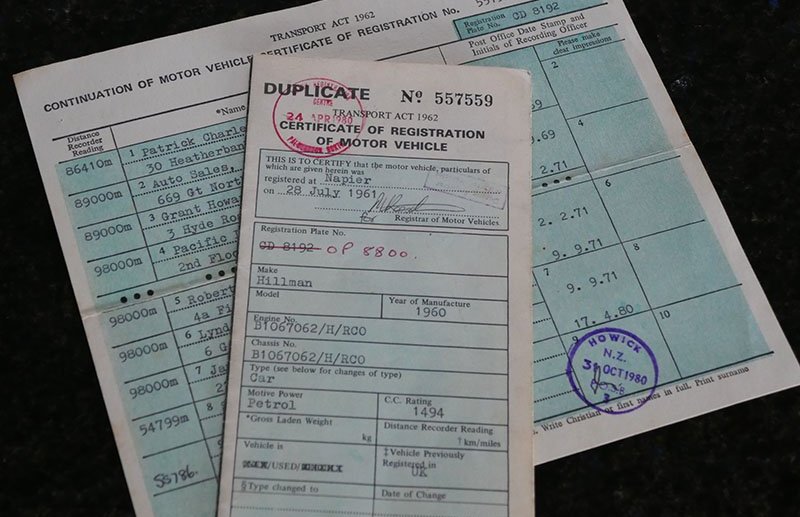 TRANSPORT ACT 1962
CONTINUATION OF MOTOR VEHICLE CERTIFICATE OF REGISTRATION No.
Registration Plate No. CD 8192
Post Office Date Stamp and
Initials of Recording Officer
Please make
clear impressions
Distance
Recorder
Reading
*Name
86410m 1 Patrick Charle
30 Heatherban
89000m 2 Auto Sales,
669 Gt North
89000m 3 Grant Howa
3 Hyde Ro
98000m 4 Pacific
2nd Floo
98000m 5 Robert
4a Fi
98000m 6 Lynd
6 G
98000m 7 Ja
54799m 8
55786.
2
4
.69
2.71
6
2. 2.71
9.9.71
8
7
9. 9.71
17.4.80
9
10
HOWICK
N.Z.
31 OCT 1980
3
Write Christian or first names in full. Print surname
DUPLICATE
Nº 557559
24 APR 1980
CENTRE
TRANSPORT ACT 1962
CERTIFICATE OF REGISTRATION
OF MOTOR VEHICLE
THIS IS TO CERTIFY that the motor vehicle, particulars of
which are given herein was
registered at Napier
on 28 July 1961
for Registrar of Motor Vehicles
Registration Plate No.
CD 8192 OP 8800.
Make
Hillman
Model
Year of Manufacture
1960
Engine No.
B1067062/H/RCO
Chassis No.
B1067062/H/RCO
Type (see below for changes of type)
Car
Motive Power
Petrol
C.C. Rating
1494
*Gross Laden Weight
kg
Distance Recorder Reading
†km/miles
Vehicle is
/USED/
‡Vehicle Previously
Registered in
UK
§Type changed to
Date of Change